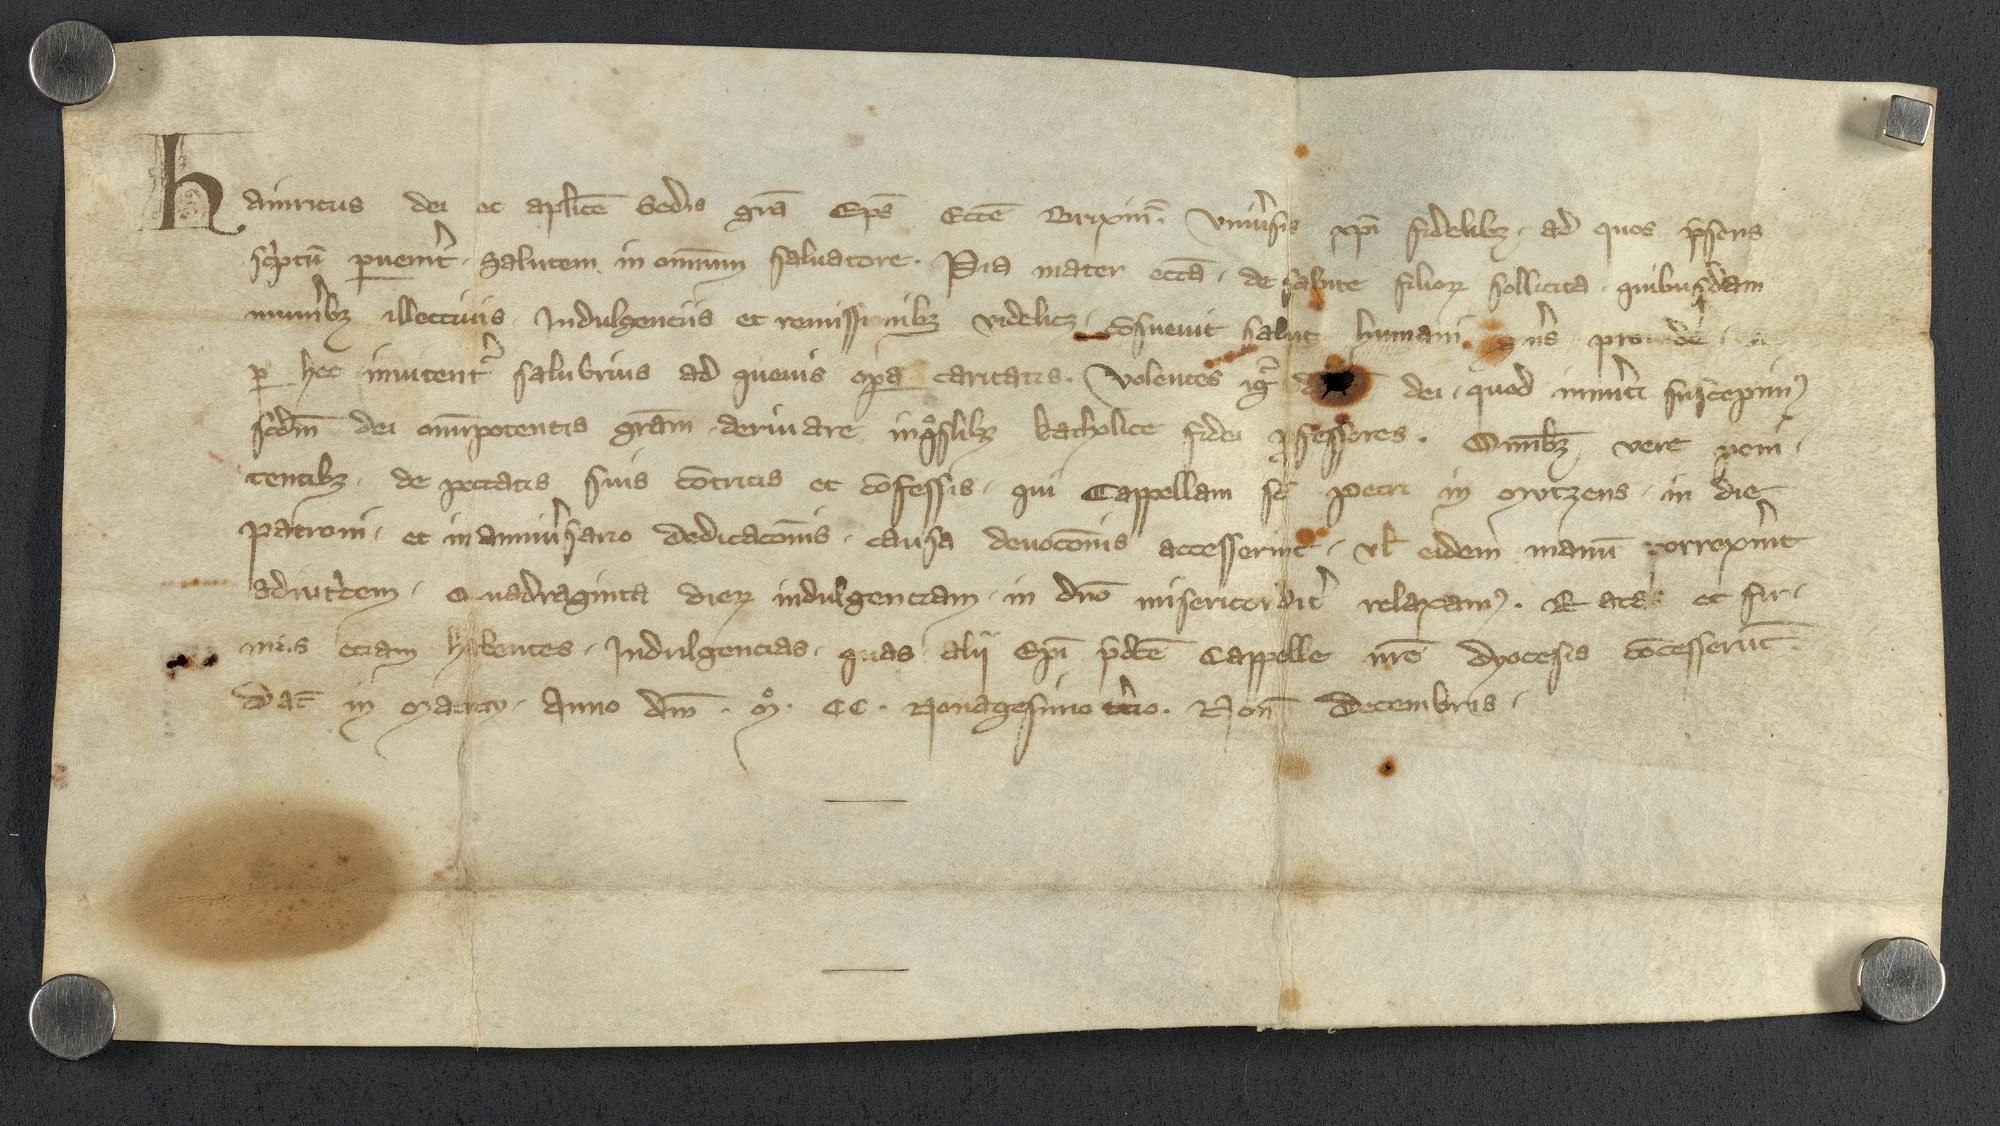 hainricus dei et aplice Sedis gra Eps Ecce Brixin. Vniuersis xpi fidelibz. ad quos psens
scptu peruenerit. Salutem in omnium saluatore. Pia mater ecca. de salute filiorz sollicita. quibusdam
muneribz illectiuis. Indulgenciis et remissionibz videlicz. cosueuit salut humani gnis prouide.
p hec inuitent salubrius ad queuis opa caritatis. Volentes igr dei. quod immeriti suscepim
scdm dei omipotentis gram deriuare katholice fidei pfessores. Omibz vere peni.
tentibz. de peccatis suis cotritis et cofessis. qui Cappellam sc Petri in Mutzens. in die
patroni. et in anniuersario dedicacois. causa deuocois accesserint. vl eidem manu porrexerint
adiutcem. Quadraginta dierz indulgenciam. in dno misericordit relaxam. Ratas et fir.
mas eciam habentes. Indulgencias. quas alij Epi pdce Cappelle nre dyocesis cocesserut.
Dat in Matray. Anno dni. M. CC. Nonagesimo tercio. Non Decembris.